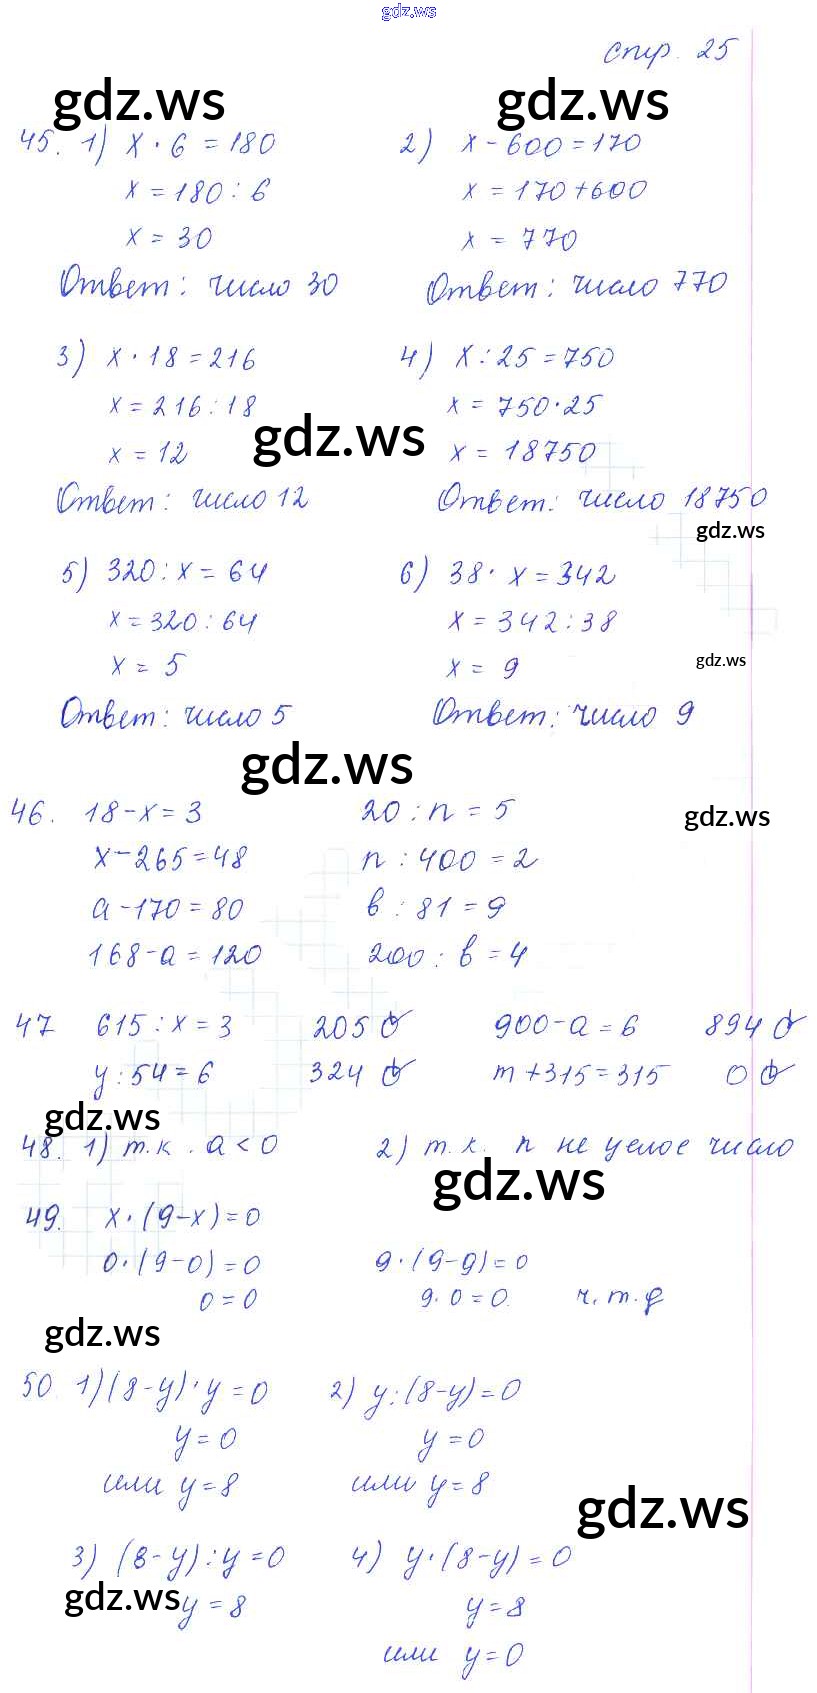 gdz.ws
стр. 25
gdz.ws gdz.ws
45. 1) x · 6 = 180 2) x - 600 = 170
x = 180 : 6 x = 170 + 600
x = 30 x = 770
Ответ: число 30 Ответ: число 770
3) x · 18 = 216 4) x : 25 = 750
x = 216 : 18 x = 750 · 25
gdz.ws
x = 12 x = 18750
Ответ: число 12 Ответ: число 18750
gdz.ws
5) 320 : x = 64 6) 38 · x = 342
x = 320 : 64 x = 342 : 38
x = 5 x = 9
gdz.ws
Ответ: число 5 Ответ: число 9
gdz.ws
46. 18 - x = 3 20 : n = 5
gdz.ws
x - 265 = 48 n : 400 = 2
a - 170 = 80 b : 81 = 9
168 - a = 120 200 : b = 4
47 615 : x = 3 205 900 - a = 6 894
y : 54 = 6 324 m + 315 = 315 0
gdz.ws
48. 1) т.к. a < 0 2) т.к. n не целое число
gdz.ws
49. x · (9 - x) = 0
0 · (9 - 0) = 0 9 · (9 - 9) = 0
0 = 0 9 · 0 = 0. ч.т.д
gdz.ws
50. 1) (8 - y) · y = 0 2) y : (8 - y) = 0
y = 0 y = 0
или y = 8 или y = 8
gdz.ws
3) (8 - y) : y = 0 4) y · (8 - y) = 0
gdz.ws
y = 8 y = 8
или y = 0